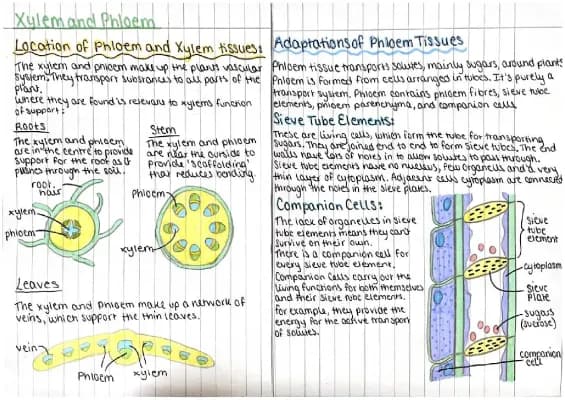 Xylem and Phloem
Location of Phloem and Xylem tissues:
The xylem and phloem make up the plants vascular
system. They transport substances to all parts of the
plant.
Where they are found is relevant to xylems function
of support:
Roots
The xylem and phloem
are in the centre to provide
support for the root as it
pushes through the soil.
root hair
xylem
phloem
Stem
The xylem and phloem
are near the outside to
provide 'scaffolding'
that reduces bending.
Phloem
xylem
Leaves
The xylem and phloem make up a network of
veins, which support the thin leaves.
vein
Phloem
xylem
Adaptations of Phloem Tissues
Phloem tissue transports solutes, mainly sugars, around plants
Phloem is formed from cells arranged in tubes. It's purely a
transport system. Phloem contains phloem fibres, sieve tube
elements, phloem parenchyma, and companion cells
Sieve Tube Elements:
These are living cells, which form the tube for transporting
sugars. They are joined end to end to form sieve tubes. The end
walls have lots of holes in to allow solutes to pass through.
Sieve tube elements have no nucleus, few organells and a very
thin layer of cytoplasm. Adjacent cells cytoplasm are connected
through the holes in the sieve plates.
Companion Cells:
The lack of organelles in sieve
tube elements means they can't
survive on their own.
There is a companion cell for
every sieve tube element.
Companion cells carry out the
living functions for both themselves
and their sieve tube elements.
for example, they provide the
energy for the active transport
of solutes.
sieve
tube
element
cytoplasm
sieve
plate
sugars
(sucrose)
companion
cell